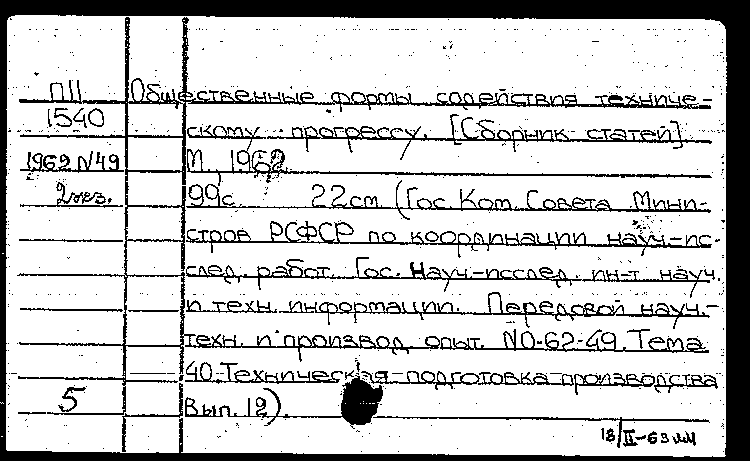 П11 Общественные формы содействия техниче-
1540 скому прогрессу. [Сборник статей]
1962 N49 М., 1962
2экз. 99с. 22см. (Гос. Ком. Совета Мини-
стров РСФСР по координации науч-ис-
след. работ. Гос. Науч-исслед. ин-т науч.
и техн. информации. Передовой науч.-
техн. и производ. опыт. NО-62-49. Тема
40. Техническая подготовка производства
5 Вып. 12).
13/II-63